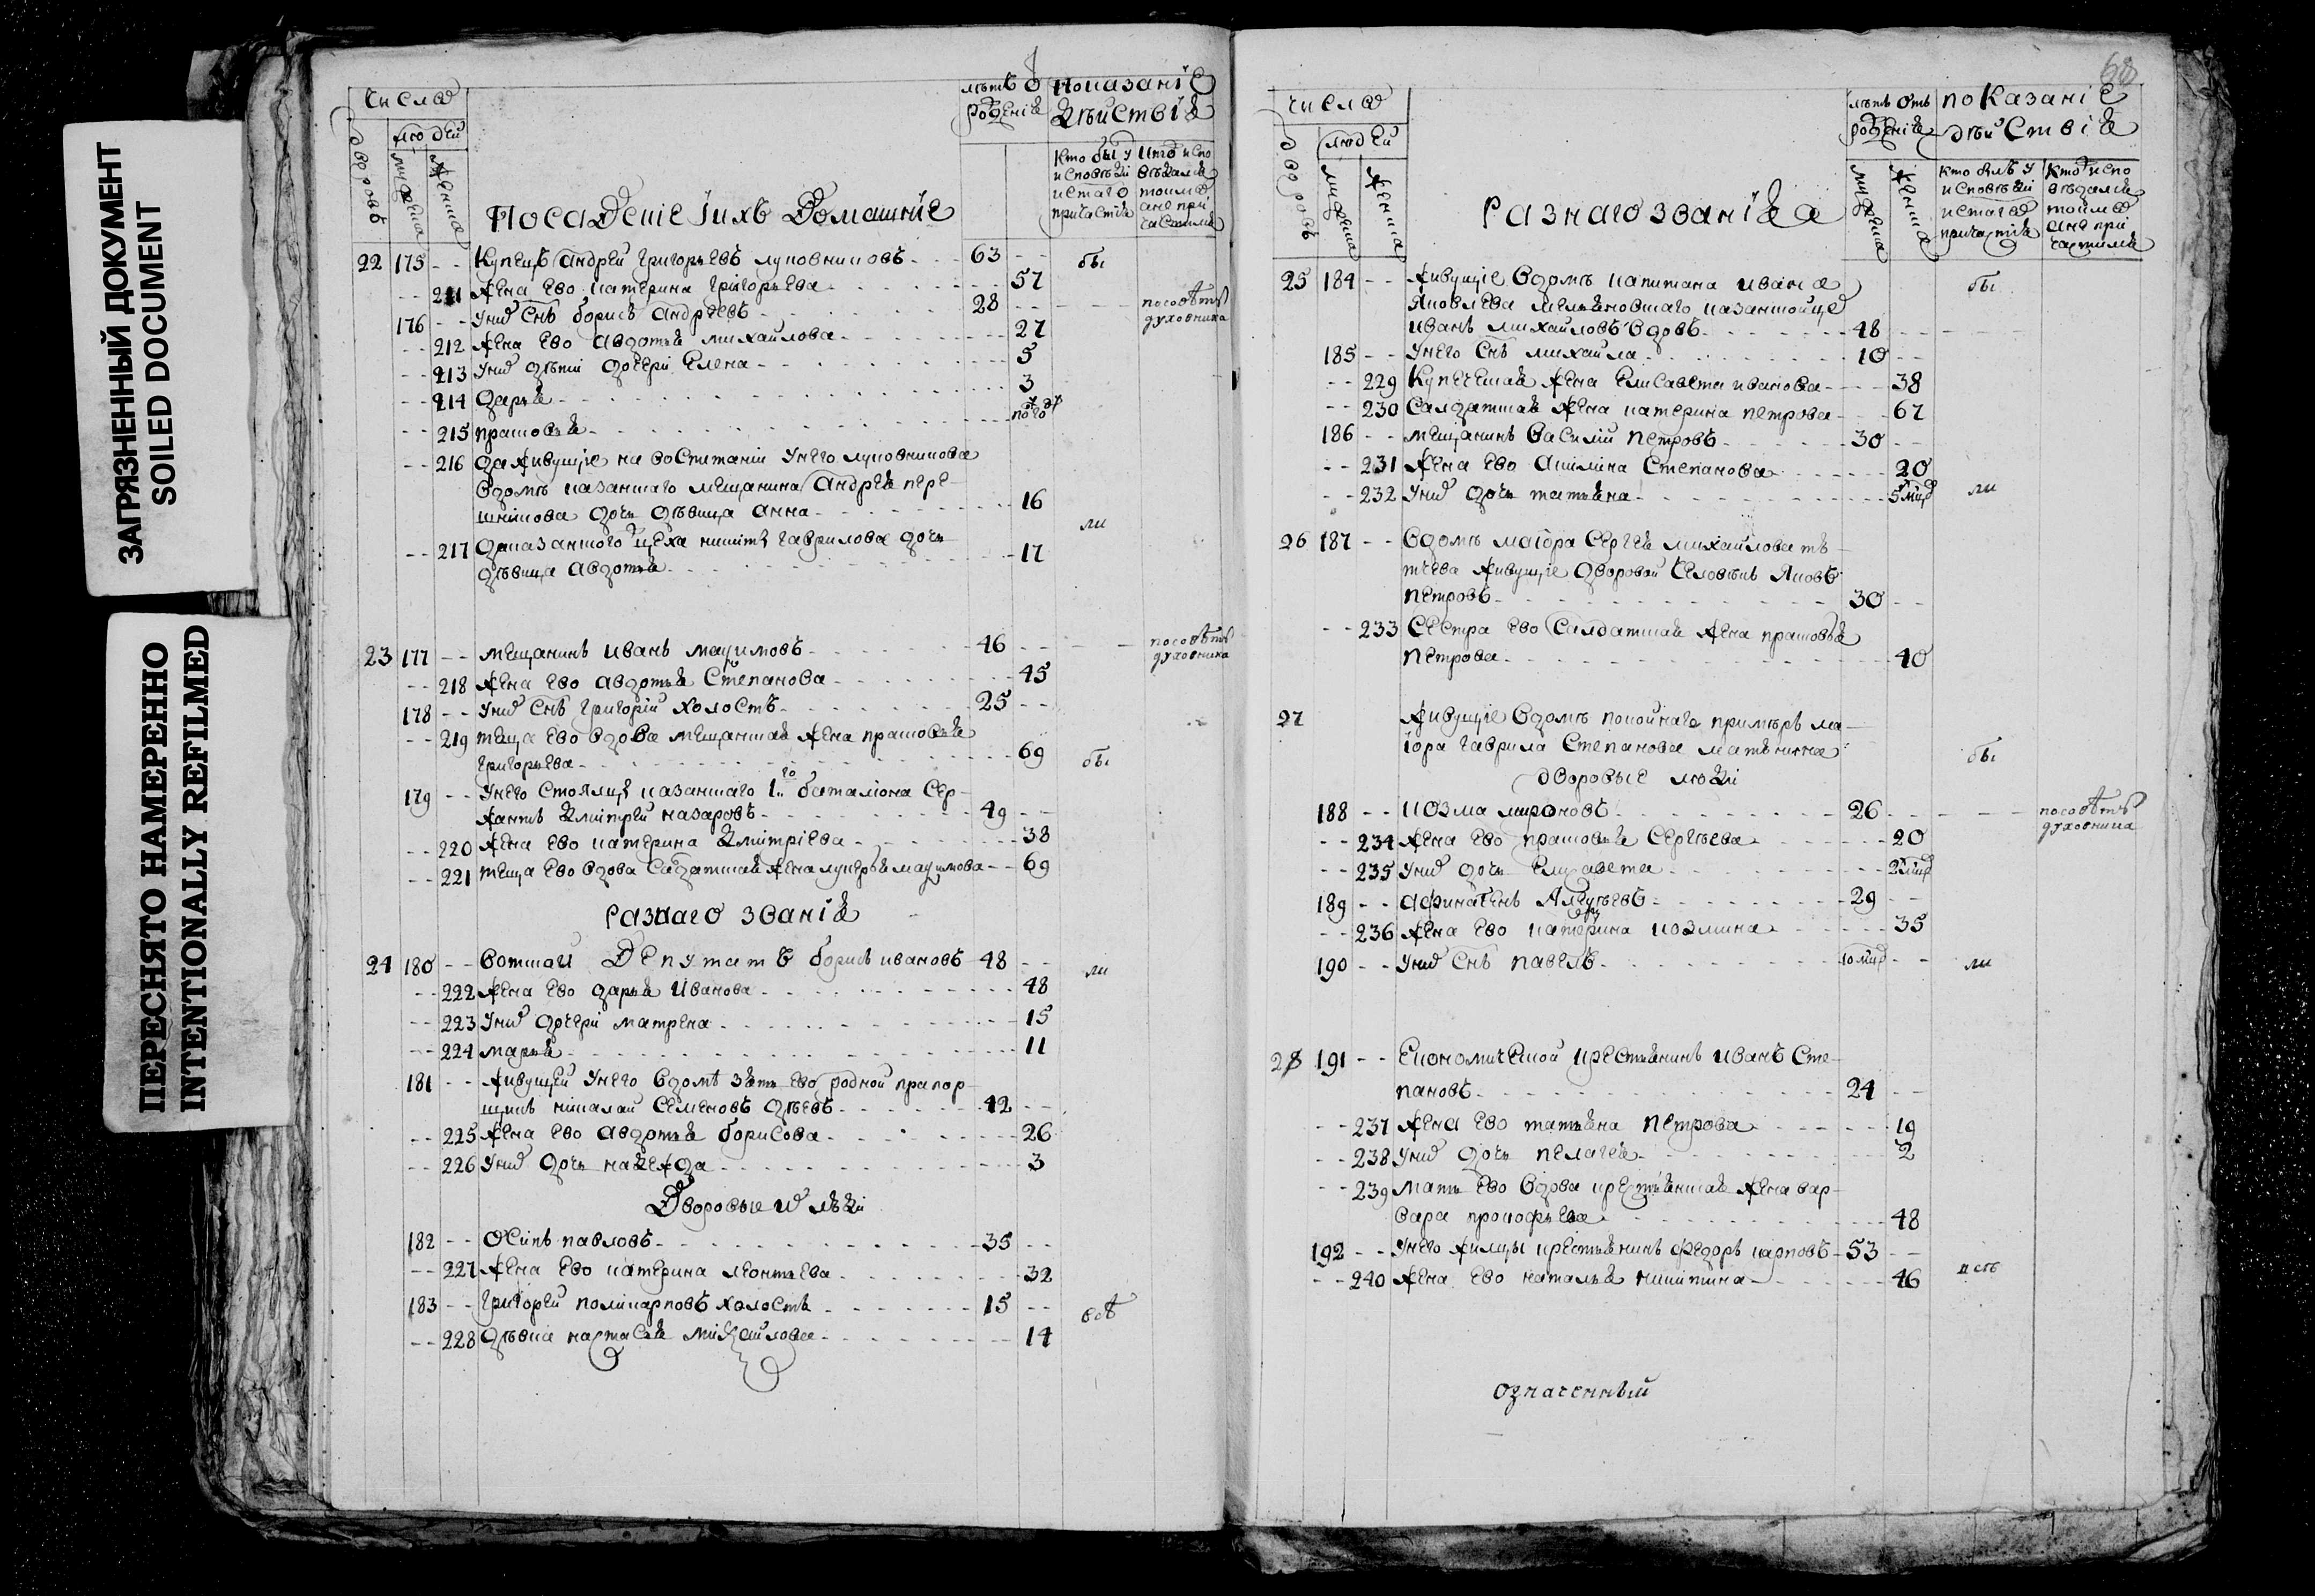 ЗАГРЯЗНЕННЫЙ ДОКУМЕНТ
SOILED DOCUMENT
ПЕРЕСНЯТО НАМЕРЕННО
INTENTIONALLY REFILMED
числа
людей
дворовъ
мужеска
женска
Посадские iихъ Домашние
лѣтъ ѿ рождениѧ
показанiе дѣйствiѧ
кто былъ у исповѣди исвятаго причастиѧ
кто исповѣдалсѧ токмо ане причастилсѧ
22 175 - - Купецъ андрей григорьевъ луковниковъ - - 63 - - бы
- - 211 Жена ево катерина григорьева - - 57
176 - - Унихъ снъ борисъ андрѣевъ - - 28 - - посовѣту духовника
- - 212 Жена ево авдотьѧ михайлова - - 27
- - 213 Унихъ дѣти дочери Елена - - 5
- - 214 дарьѧ - - 3
- - 215 прасковьѧ - - полго
- - 216 даживущие на воспитании Унего луковникова
вдомѣ казанскаго мещанина андрѣѧ пере-
шникова дочь дѣвица анна - - 16
ли
- - 217 даказанского цеха никиты гаврилова дочь
дѣвица авдотьѧ - - 17
23 177 - - мещанинъ иванъ мазимовъ - - 46 - - посовѣту духовника
- - 218 Жена ево авдотьѧ Степанова - - 45
178 - - Унихъ снъ григорiи холостъ - - 25 - -
- - 219 теща ево вдова мещанскаѧ жена прасковьѧ
григорьева - - 69 бы
179 - - Унего стоялец казанскаго 1го баталiона сер-
жантъ дмитрей назаровъ - - 49 - -
- - 220 Жена ево катерина дмитрiева - - 38
- - 221 теща ево вдова салдатскаѧ жена лукерьѧ мазимова - - 69
Разнаго званiѧ
24 180 - - вотской Депутатъ борисъ ивановъ - 48 - - ли
- - 222 Жена ево дарьѧ Иванова - - 48
- - 223 Унихъ дочери матрена - - 15
- - 224 марьѧ - - 11
181 - - живущей Унего вдомѣ зѧть ево родной прапор-
щикъ николай семеновъ дѣевъ - - 42 - -
- - 225 Жена ево авдотьѧ борисова - - 26
- - 226 Унихъ дочь надежда - - 3
Дворовые ихъ люди
182 - - Осипъ павловъ - - 35 - -
- - 227 Жена ево катерина леонтьева - - 32
183 - - григорей поликарповъ холостъ - - 15 - - всѣ
- - 228 дѣвка настасьѧ михайлова - - 14
68
числа
людей
дворовъ
мужеска
женска
Разнаго званiѧ
лѣтъ отъ рождениѧ
мужеска
женска
показанiе дѣйствiѧ
кто былъ у исповѣди исвятаго причастиѧ
кто исповѣдалсѧ токмо ане причастилсѧ
25 184 - - живущие вдомѣ капитана ивана бы
Яковлева мельѧновскаго казанской це
иванъ михайловъ вдовъ - - 48 - -
185 - - Унего снъ михайла - - 10 - -
- - 229 Купеческаѧ жена елисавета иванова - - 38
- - 230 Салдатскаѧ жена катерина петрова - - 67
186 - - мещанинъ василiи петровъ - - 30 - -
- - 231 Жена ево акилина степанова - - 20
- - 232 Унихъ дочь татьѧна - - 5 мцъ ли
26 187 - - вдомѣ маiора сергеѧ михайлова тѣ-
тѣева живущие дворовой человѣкъ Яковъ
петровъ - - 30 - -
- - 233 сестра ево салдатскаѧ жена прасковьѧ
петрова - - 40
27 живущие вдомѣ покойнаго примѣръ ма-
iора гаврила степанова матюнина бы
дворовые люди
188 - - козма мироновъ - - 26 - - посовѣту духовника
- - 234 жена ево прасковьѧ сергѣева - - 20
- - 235 Унихъ дочь елизавета - - 2 мцъ
189 - - афиногенъ Алѣѯѣевъ - - 29 - -
- - 236 жена ево катерина козмина - - 35
190 - - Унихъ снъ павелъ - - 10 мцъ - - ли
28 191 - - Економической крестьѧнинъ иванъ сте-
пановъ - - 24 - -
- - 237 жена ево татьѧна петрова - - 19
- - 238 Унихъ дочь пелагеѧ - - 2
- - 239 мать ево вдова крестьѧнскаѧ жена вар-
вара прокофьева - - 48
192 - - Унего жилцы крестьѧнинъ федоръ карповъ - 53 - -
- - 240 жена ево натальѧ никитина - - 46
означенныи